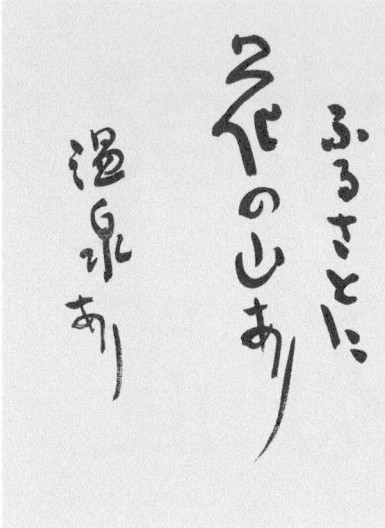 ふるさとに
花の山あり
温泉あり